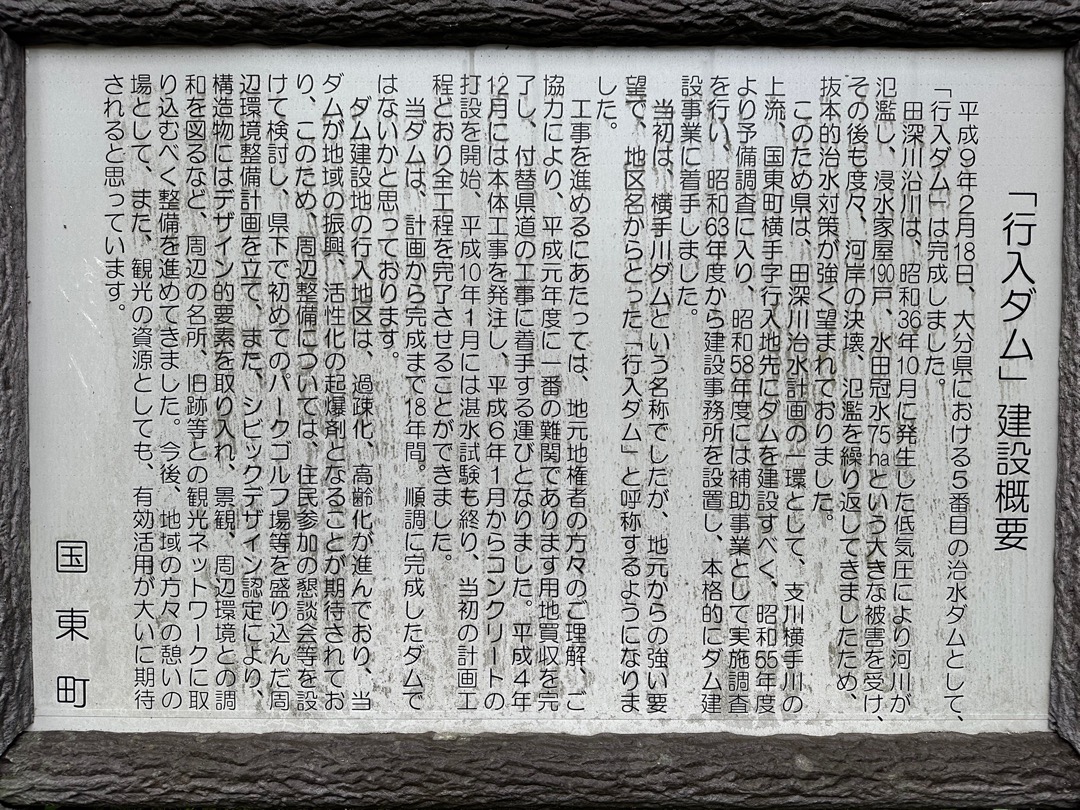 「行入ダム」建設概要
平成９年２月18日、大分県における５番目の治水ダムとして、
「行入ダム」は完成しました。
田深川沿川は、昭和36年10月に発生した低気圧により河川が
氾濫し、浸水家屋190戸、水田冠水75haという大きな被害を受け、
その後も度々、河岸の決壊、氾濫を繰り返してきましたため、
抜本的治水対策が強く望まれておりました。
このため県は、田深川治水計画の一環として、支川横手川の
上流、国東町横手字行入地先にダムを建設すべく、昭和55年度
より予備調査に入り、昭和58年度には補助事業として実施調査
を行い、昭和63年度から建設事務所を設置し、本格的にダム建
設事業に着手しました。
当初は、横手川ダムという名称でしたが、地元からの強い要
望で、地区名からとった「行入ダム」と呼称するようになりま
した。
工事を進めるにあたっては、地元地権者の方々のご理解、ご
協力により、平成元年度に一番の難関であります用地買収を完
了し、付替県道の工事に着手する運びとなりました。平成４年
12月には本体工事を発注し、平成６年１月からコンクリートの
打設を開始、平成10年１月には湛水試験も終り、当初の計画工
程どおり全工程を完了させることができました。
当ダムは、計画から完成まで18年間。順調に完成したダムで
はないかと思っております。
ダム建設地の行入地区は、過疎化、高齢化が進んでおり、当
ダムが地域の振興、活性化の起爆剤となることが期待されてお
り、このため、周辺整備については、住民参加の懇談会等を設
けて検討し、県下で初めてのパークゴルフ場等を盛り込んだ周
辺環境整備計画を立て、また、シビックデザイン認定により、
構造物にはデザイン的要素を取り入れ、景観、周辺環境との調
和を図るなど、周辺の名所、旧跡等との観光ネットワークに取
り込むべく整備を進めてきました。今後、地域の方々の憩いの
場として、また、観光の資源としても、有効活用が大いに期待
されると思っています。
国東町